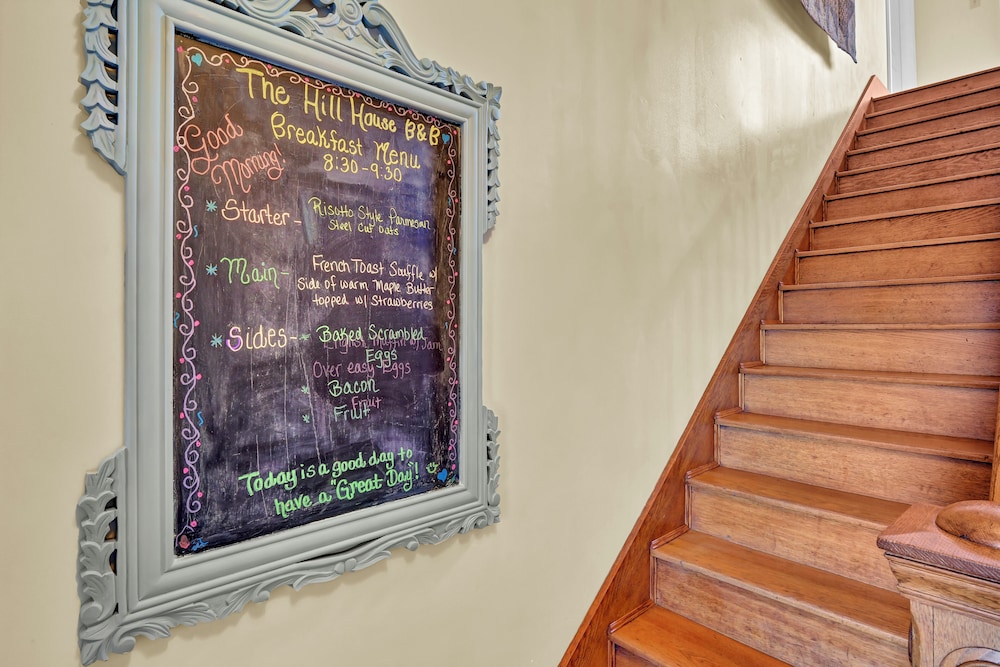 The Hill House B&B
Breakfast Menu
8:30-9:30
Good
Morning!
* Starter - Risotto Style Parmesan
Steel Cut Oats
* Main - French Toast Souffle w/
side of warm Maple Butter
topped w/ Strawberries
* Sides - * Baked Scrambled
English Muffin w/ Jam
Eggs
Over easy Eggs
* Bacon
Fruit
* Fruit
Today is a good day to
have a "Great Day"!